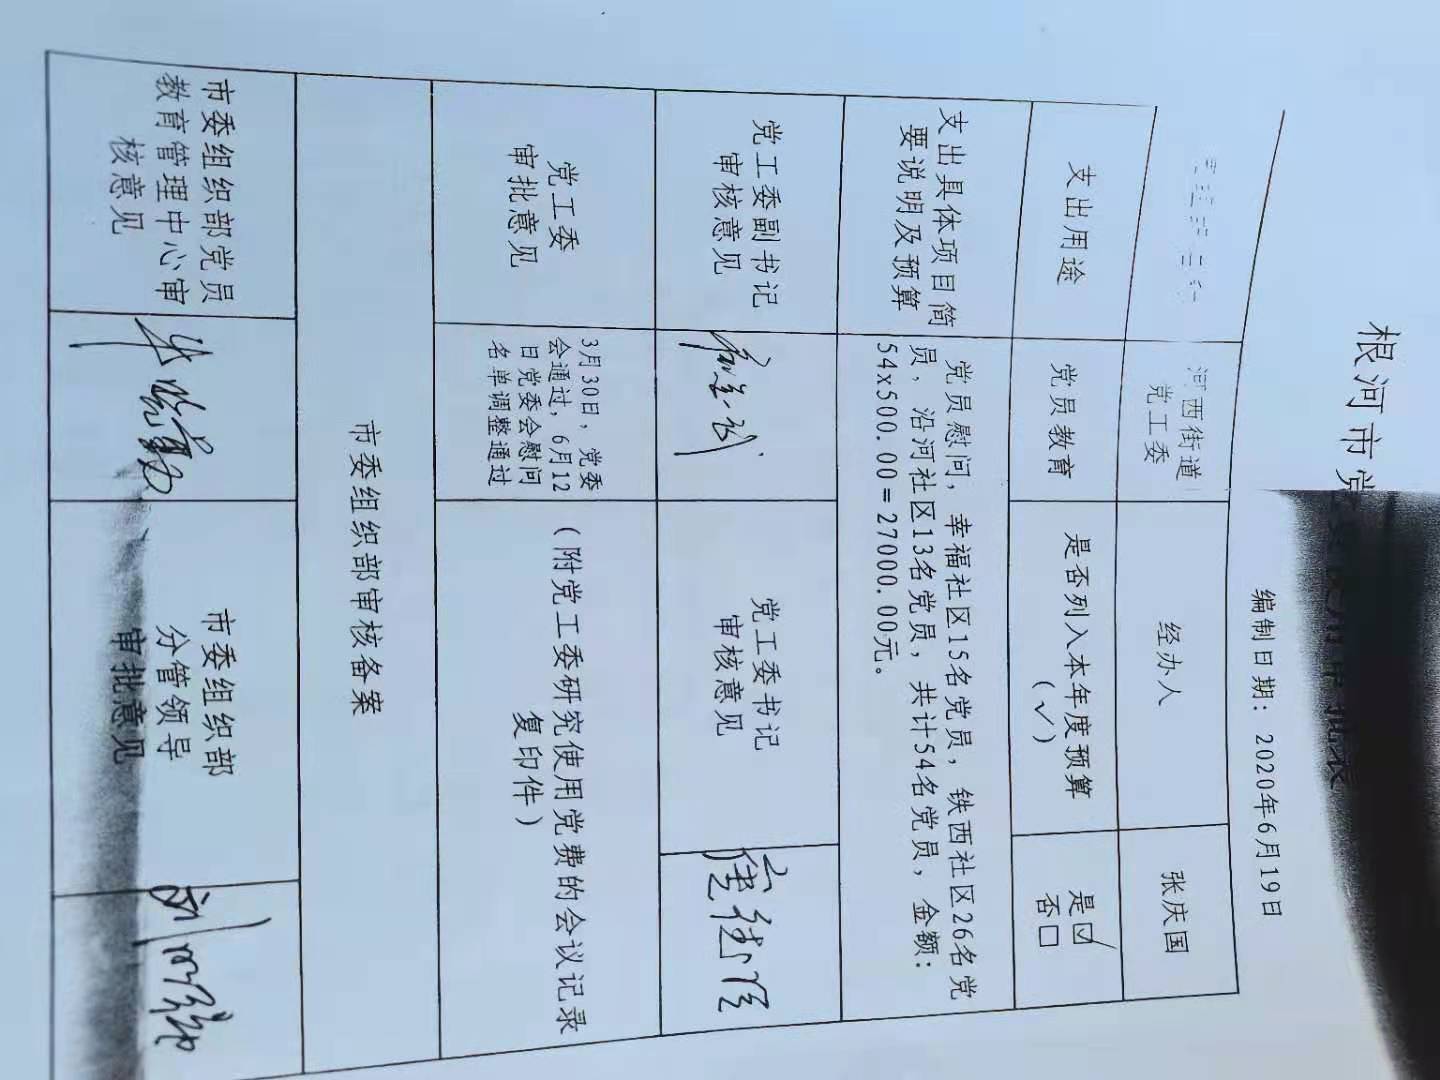 根河市党
编制日期：2020年6月19日
河西街道
党工委
经办人
张庆国
支出用途
党员教育
是否列入本年度预算
（✓）
是☑
否□
支出具体项目简
要说明及预算
党员慰问，幸福社区15名党员，铁西社区26名党
员，沿河社区13名党员，共计54名党员，金额：
54x500.00=27000.00元。
党工委副书记
审核意见
党工委书记
审核意见
党工委
审批意见
3月30日，党委
会通过，6月12
日党委会慰问
名单调整通过
（附党工委研究使用党费的会议记录
复印件）
市委组织部审核备案
市委组织部党员
教育管理中心审
核意见
市委组织部
分管领导
审批意见